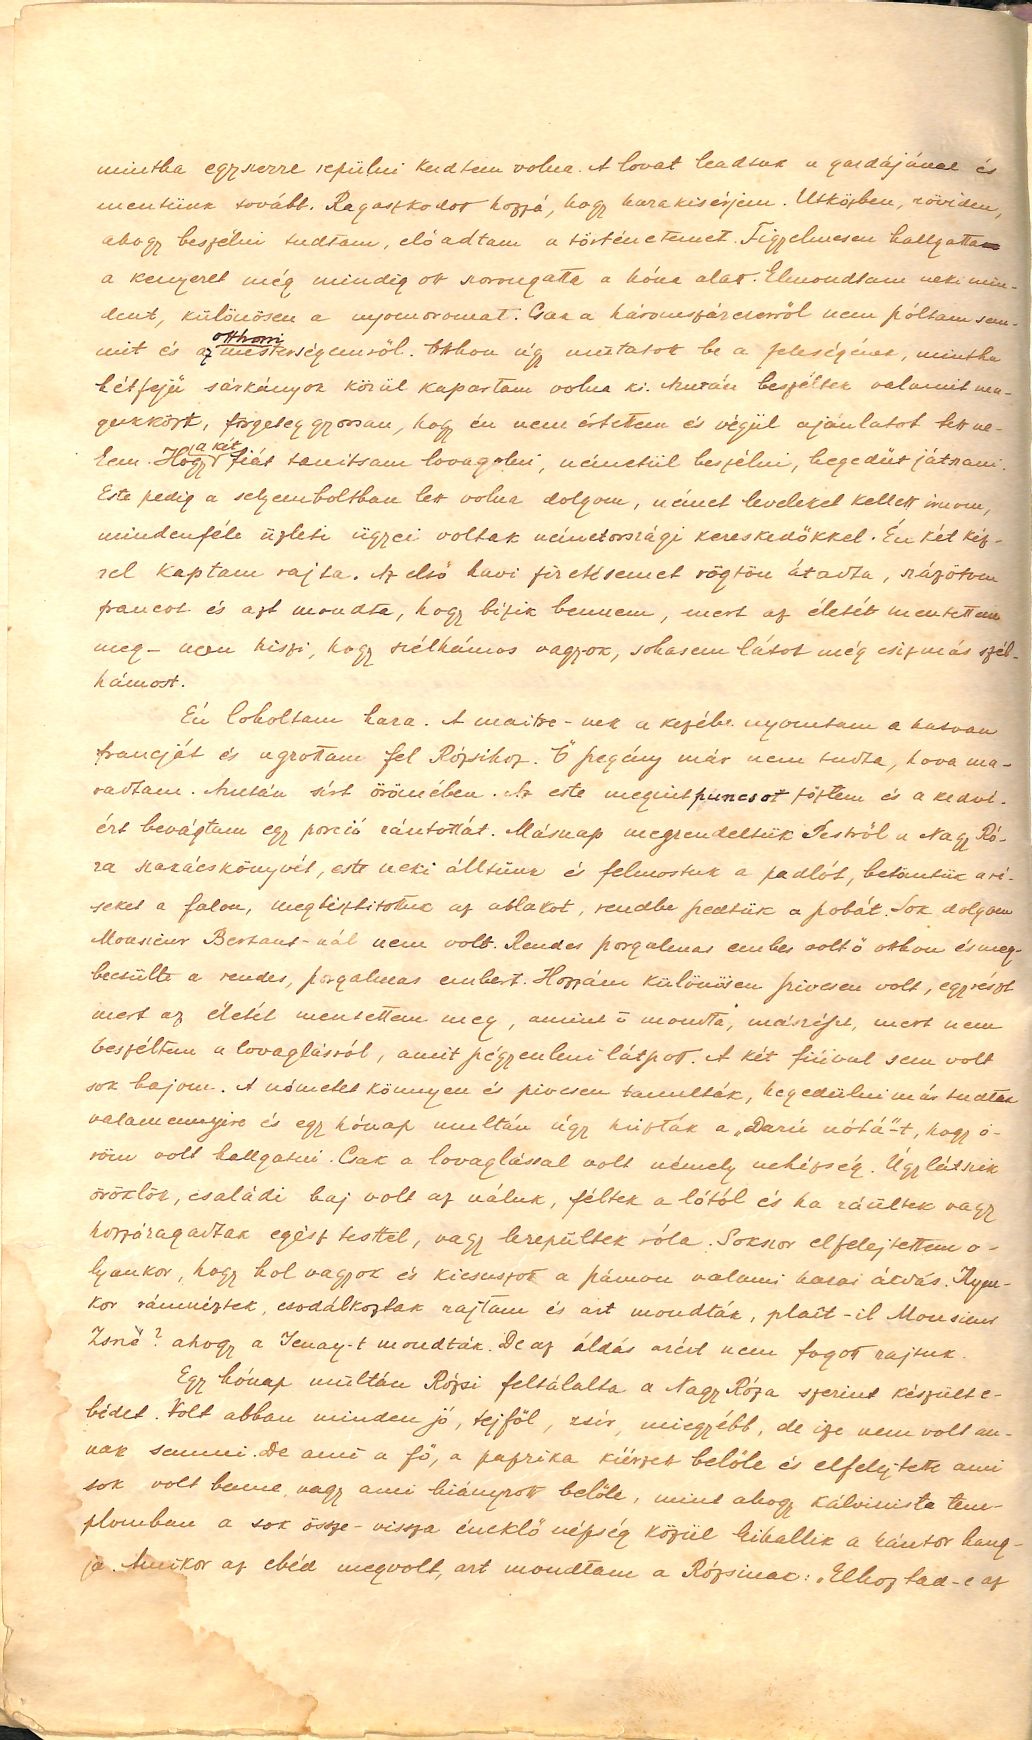 mintha egyszerre repülni tudtam volna. A lovat leadtuk a gazdájának és
mentünk tovább. Ragaszkodott hozzá, hogy hazakisérjem. Utközben, röviden,
ahogy beszélni tudtam, előadtam a történetemet. Figyelmesen hallgatta
a kenyeret még mindig ott szorongatta a hóna alatt. Elmondtam neki min-
dent, különösen a nyomoromat. Csak a háromszázezerről nem szóltam sem-
mit és az otthoni mesterségemről. Otthon úgy mutatott be a feleségének, mintha
hétfejü sárkányok közül kapartam volna ki. Azután beszéltek valamit ma-
guk közt, förgeteg gyorsan, hogy én nem értettem és végül ajánlatot tett ne-
kem. Hogy a két fiát tanitsam lovagolni, németül beszélni, hegedűt játszani.
Este pedig a selyemboltban lett volna dolgom, német leveleket kellett irnom,
mindenféle üzleti ügyei voltak németországi kereskedőkkel. Én két kéz-
zel kaptam rajta. Az első havi fizetésemet rögtön átadta, százötven
francot és azt mondta, hogy bizik bennem, mert az életét mentettem
meg - nem hiszi, hogy szélhámos vagyok, sohasem látott még csizmás szél-
hámost.
Én loholtam haza. A maitre-nek a kezébe nyomtam a hatvan
francját és ugrottam fel Rózsihoz. Ő szegény már nem tudta, hova ma-
radtam. Azután sirt örömében. Az este megint puncsot főztem és a kedvi-
ért bevágtam egy porció rántottát. Másnap megrendeltük Pestről a Nagy Ró-
za szakácskönyvét, este neki álltunk és felmostuk a padlót, betömtük a ré-
seket a falon, megtisztitottuk az ablakot, rendbe szedtük a szobát. Sok dolgom
Monsieur Bertant-nál nem volt. Rendes szorgalmas ember volt ő otthon és meg-
becsülte a rendes, szorgalmas embert. Hozzám különösen szivesen volt, egyrészt
mert az életét mentettem meg, amint ő mondta, másrészt, mert nem
beszéltem a lovaglásról, amit szégyenleni látszott. A két fiúval sem volt
sok bajom. A németet könnyen és szivesen tanulták, hegedülni már tudtak
valamennyire és egy hónap multán úgy húzták a „Darú nótá"-t, hogy ö-
röm volt hallgatni. Csak a lovaglással volt némely nehézség. Úgylátszik
öröklött, családi baj volt az náluk, féltek a lótól és ha ráültek vagy
hozzáragadtak egész testtel, vagy lerepültek róla. Sokszor elfelejtettem o-
lyankor, hogy hol vagyok és kicsuszott a számon valami hazai áldás. Ilyen-
kor rámnéztek, csodálkoztak rajtam és azt mondták, plait-il Monsieur
Zsnè? ahogy a Jenay-t mondták. De az áldás azért nem fogott rajtuk.
Egy hónap multán Rózsi feltálalta a Nagy Róza szerint készült e-
bédet. Volt abban minden jó, tejföl, zsir, miegyébb, de ize nem volt an-
nak semmi. De ami a fő, a paprika kiérzett belőle és elfelejtette ami
sok volt benne, vagy ami hiányzott belőle, mint ahogy kálvinista tem-
plomban a sok össze-vissza éneklő népség közül kihallik a kántor hang-
ja. Amikor az ebéd megvolt, azt mondtam a Rózsinak: „Elhoztad-e az